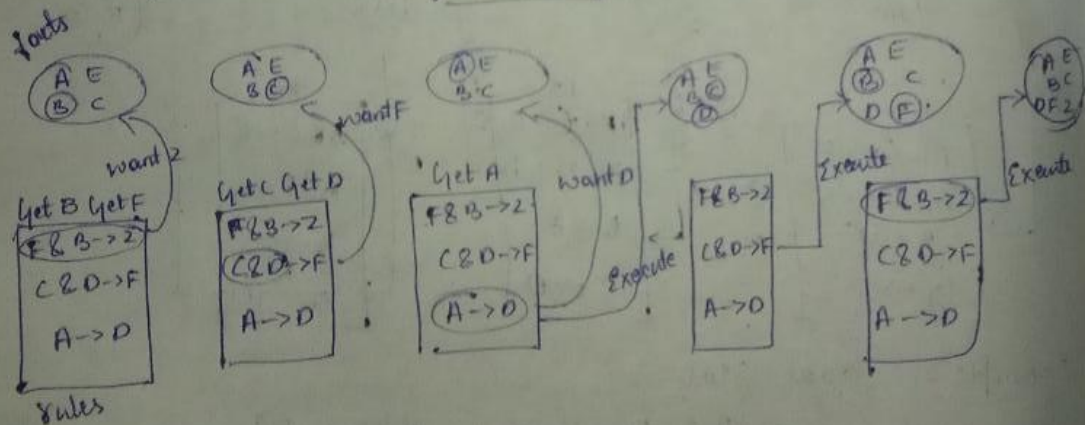 facts
A E
B C
want 2
Get B Get F
F & B -> 2
C & D -> F
A -> D
rules
A E
B C
want F
Get C Get D
F & B -> 2
C & D -> F
A -> D
A E
B C
want D
Get A
F & B -> 2
C & D -> F
A -> D
Execute
A E
B C
D
F & B -> 2
C & D -> F
A -> D
Execute
A E
B C
D F
F & B -> 2
C & D -> F
A -> D
Execute
A E
B C
D F 2